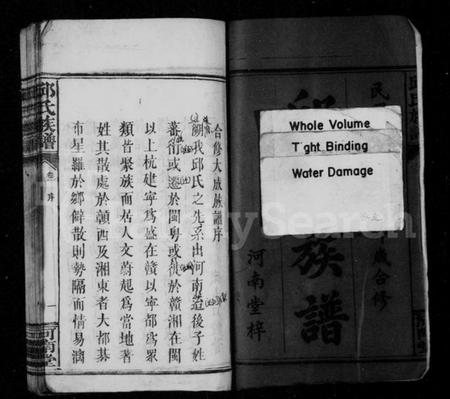 民
邱氏族譜
歲合修
河南堂梓
Whole Volume
Tight Binding
Water Damage
合修大成族譜序
朔我邱氏之先系出河南迨後子姓
蕃衍或遷於閩粵或徙於贛湘在閩
以上杭建寧為盛在贛以寧都為眾
類皆聚族而居人文蔚起為當地著
姓其散處於贛西及湘東者大都棊
布星羅於鄉僻散則勢隔而情易漓
邱氏族譜
卷 序
一
河南堂